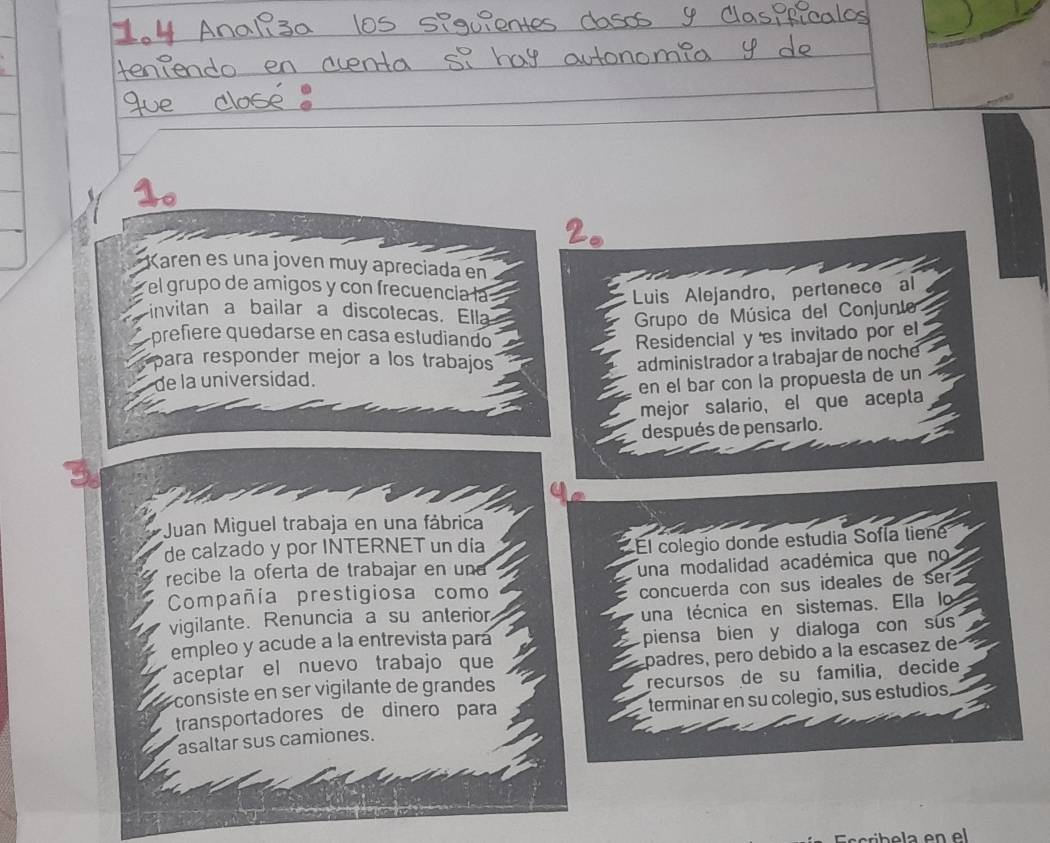 1.4 Analiza los siguientes casos y clasifícalos
teniendo en cuenta si hay autonomia y de
que clase:
1.
Karen es una joven muy apreciada en
el grupo de amigos y con frecuencia la
invitan a bailar a discotecas. Ella
prefiere quedarse en casa estudiando
para responder mejor a los trabajos
de la universidad.
2.
Luis Alejandro, pertenece al
Grupo de Música del Conjunto
Residencial y es invitado por el
administrador a trabajar de noche
en el bar con la propuesta de un
mejor salario, el que acepta
después de pensarlo.
3.
Juan Miguel trabaja en una fábrica
de calzado y por INTERNET un día
recibe la oferta de trabajar en una
Compañía prestigiosa como
vigilante. Renuncia a su anterior
empleo y acude a la entrevista para
aceptar el nuevo trabajo que
consiste en ser vigilante de grandes
transportadores de dinero para
asaltar sus camiones.
4.
El colegio donde estudia Sofía tiene
una modalidad académica que no
concuerda con sus ideales de ser
una técnica en sistemas. Ella lo
piensa bien y dialoga con sus
padres, pero debido a la escasez de
recursos de su familia, decide
terminar en su colegio, sus estudios.
Escríbela en el